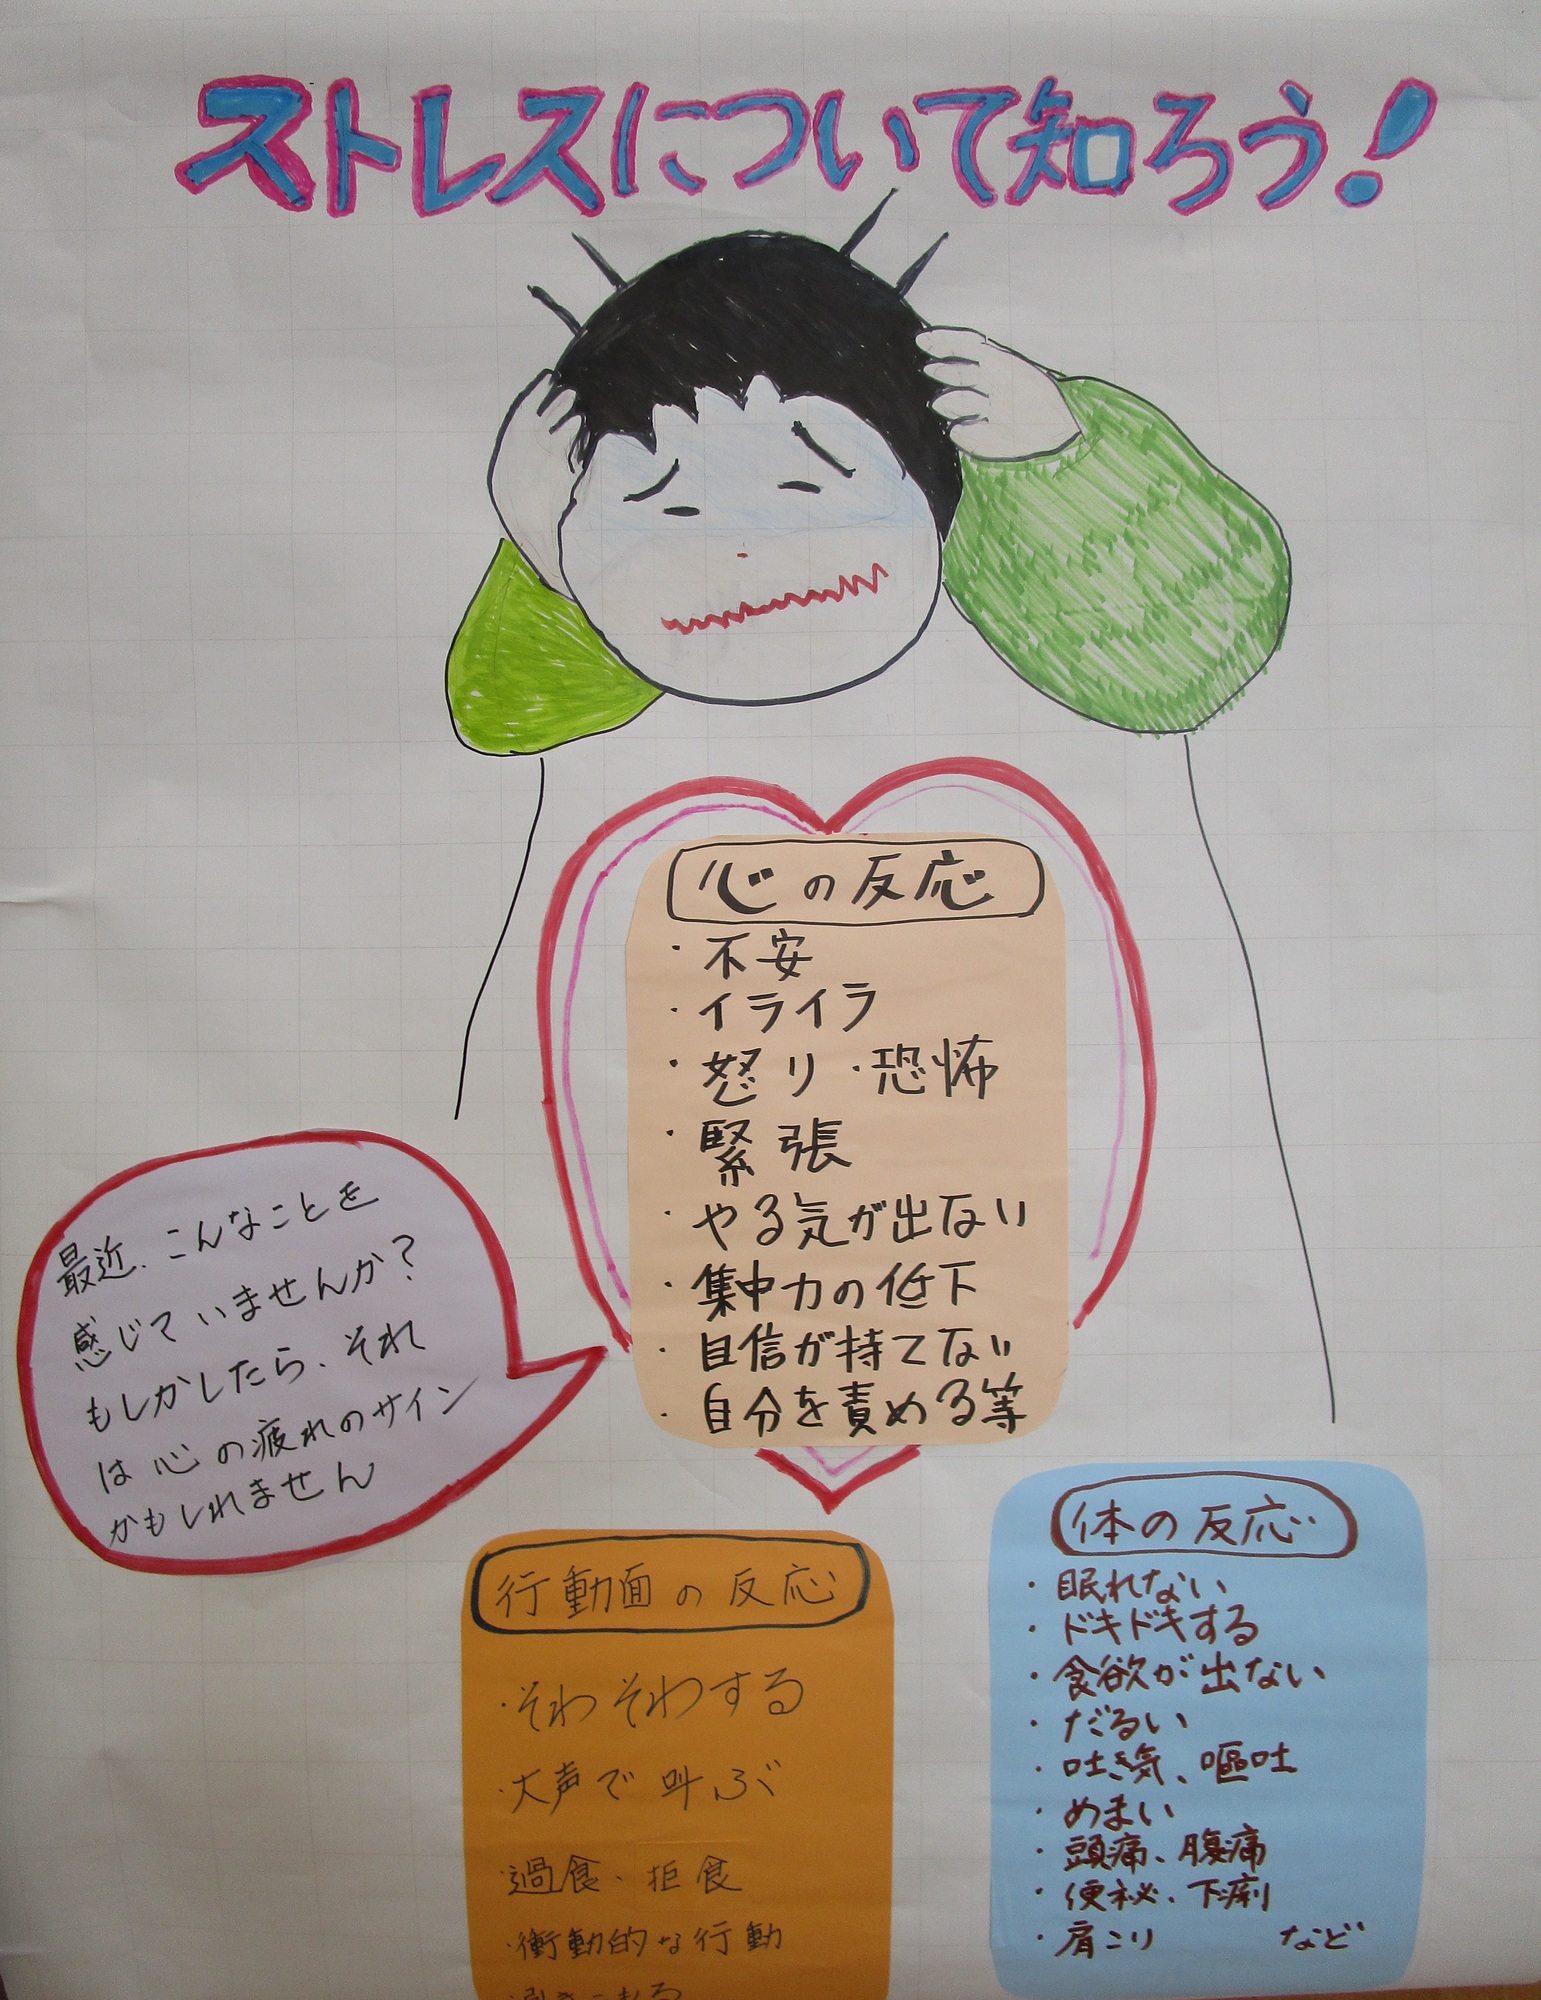 ストレスについて知ろう!
心の反応
・不安
・イライラ
・怒り・恐怖
・緊張
・やる気が出ない
・集中力の低下
・自信が持てない
・自分を責める等
最近、こんなことを
感じていませんか?
もしかしたら、それ
は心の疲れのサイン
かもしれません
行動面の反応
・そわそわする
・大声で叫ぶ
・過食、拒食
・衝動的な行動
体の反応
・眠れない
・ドキドキする
・食欲が出ない
・だるい
・吐き気、嘔吐
・めまい
・頭痛、腹痛
・便秘、下痢
・肩こり など